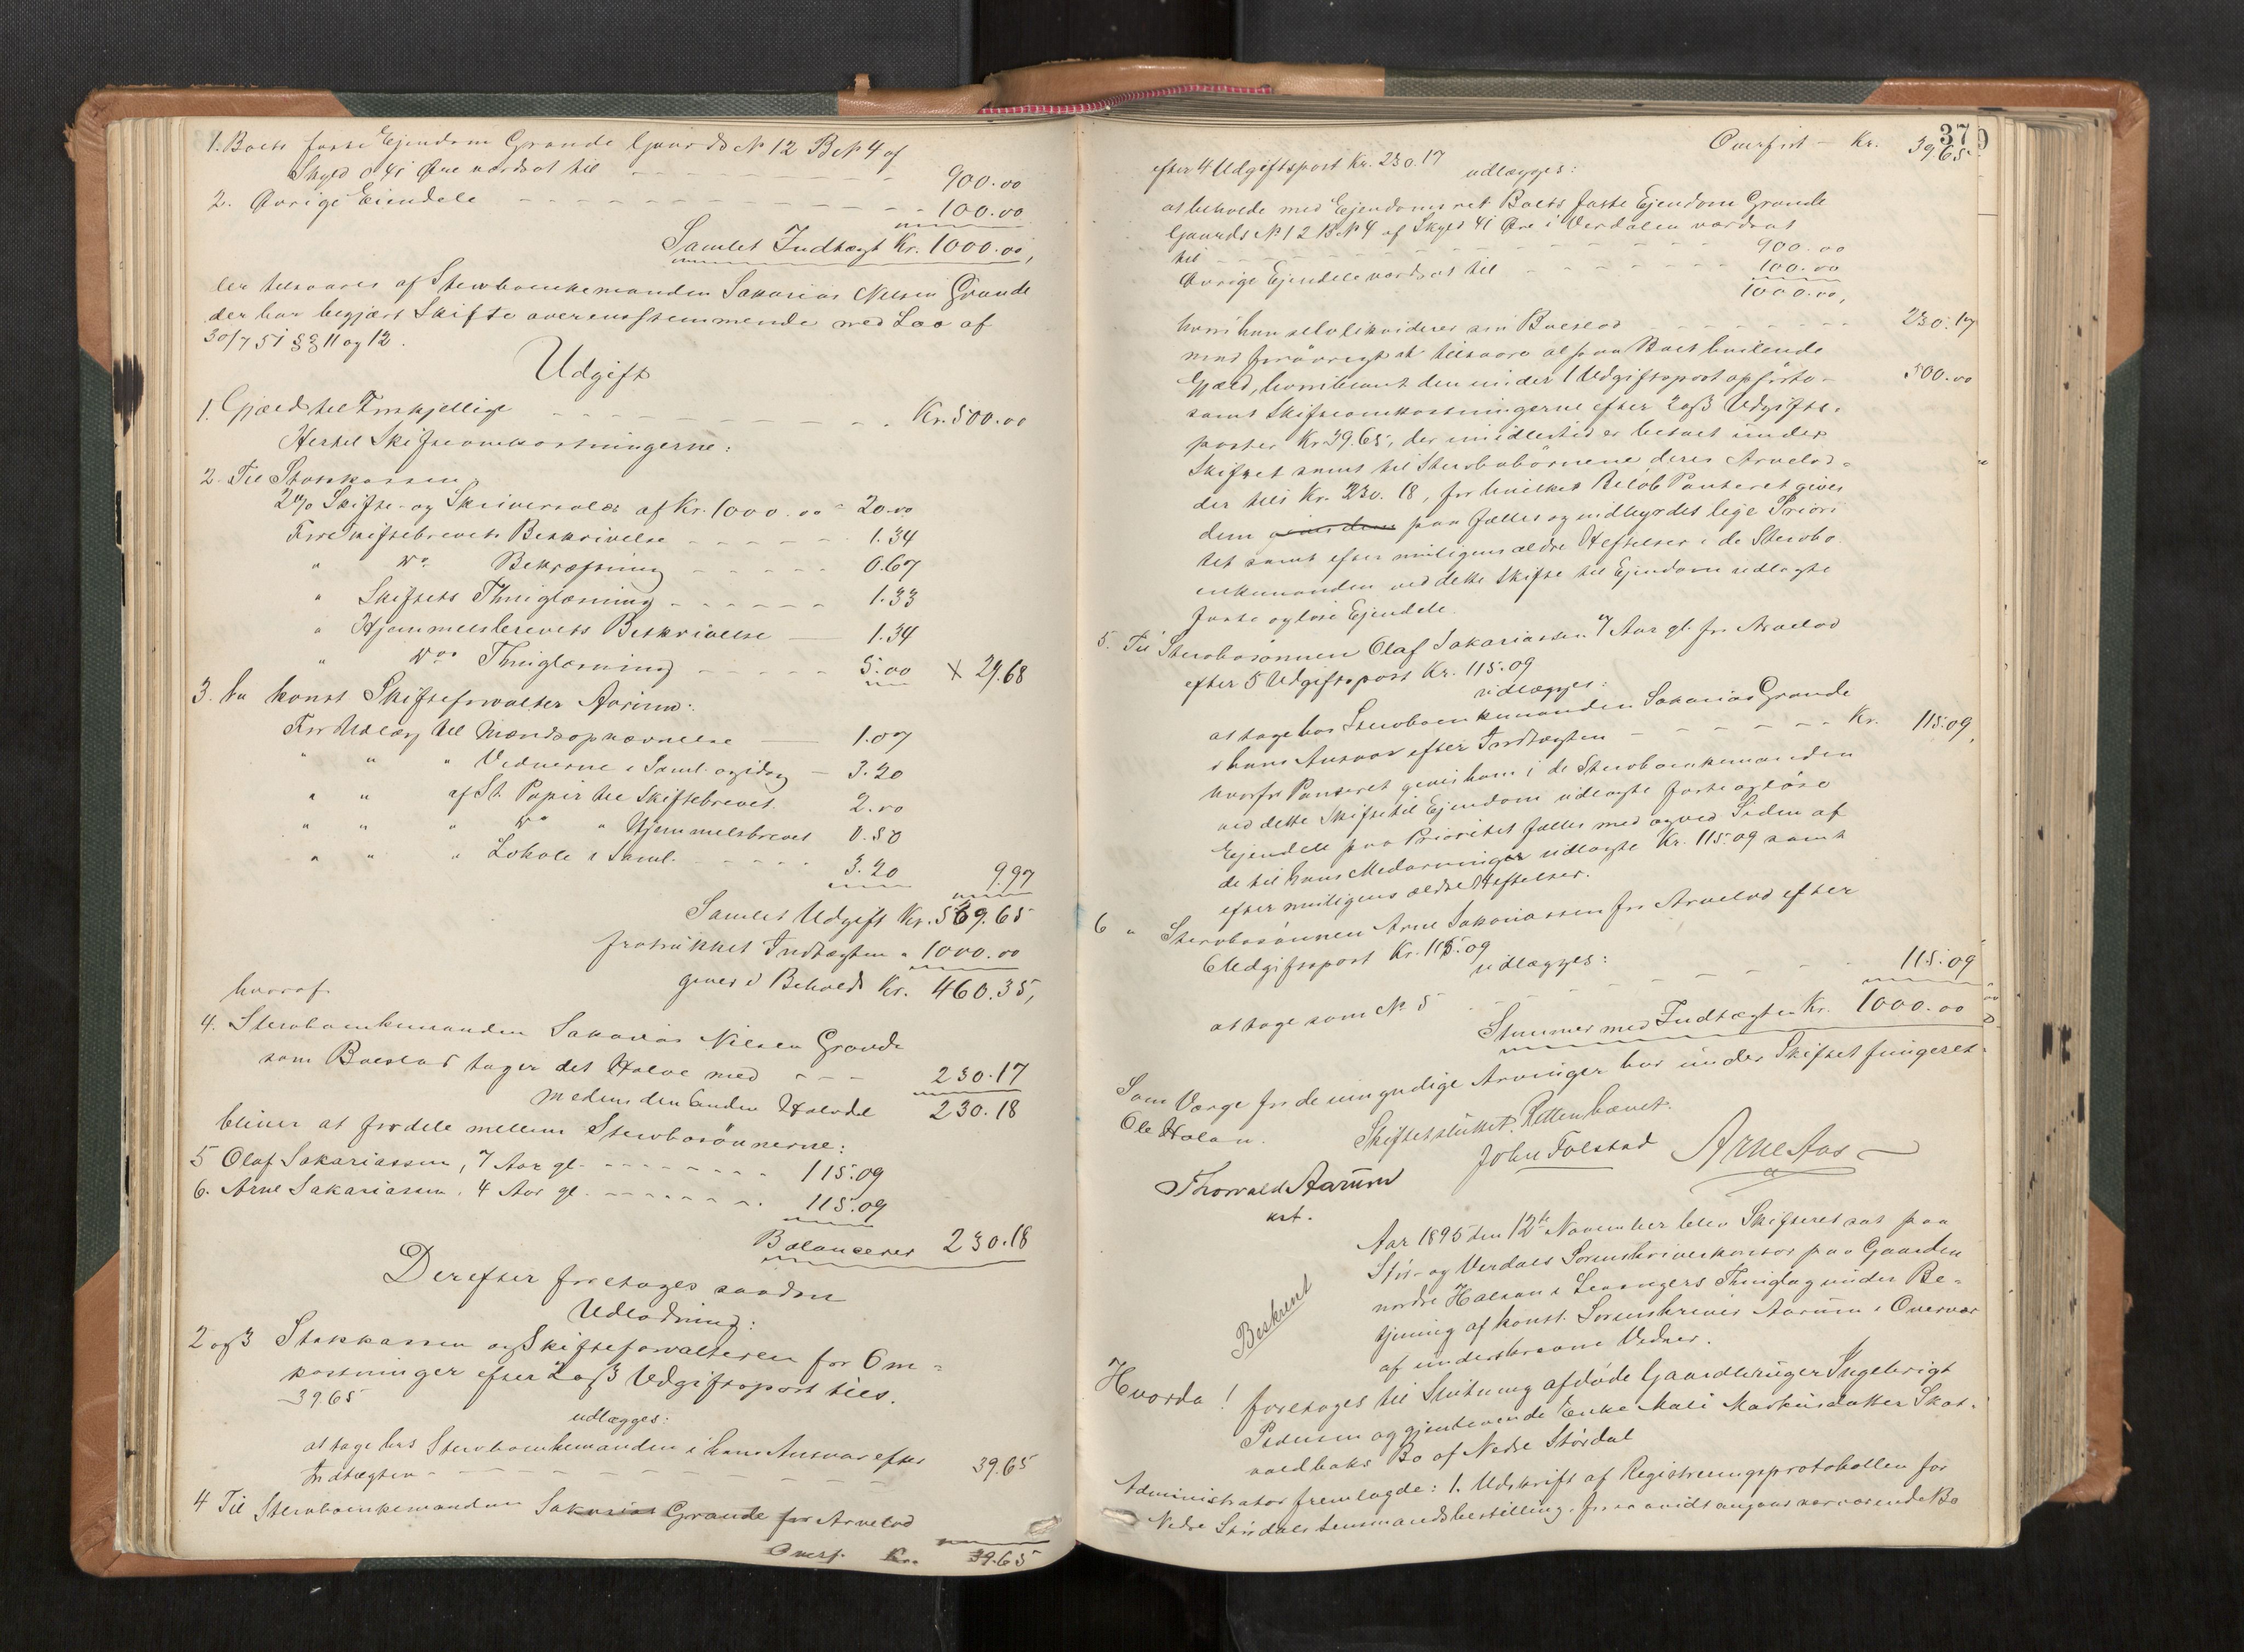 1. Boets faste Ejendom Grande Gaards No 12 B No 4 af
Skyld 0.41 Øre værdsat til 900.00
2. Øvrige Eiendele 100.00
Samlet Indtægt Kr. 1000.00,
der tilsvares af Sterboenkemanden Sakarias Nilsen Grande
der har begjært Skifte overensstemmende med Lov af
30/7 51 §§ 11 og 12.
Udgift
1. Gjæld til Forskjellige Kr. 500.00
Hertil Skifteomkostningerne:
2. Til Statskassen
2% Skifte- og Skriversalær af Kr. 1000.00 = 20.00
For Skiftebrevets Beskrivelse 1.34
" Do Bekræftning 0.67
" Skiftets Thinglæsning 1.33
" Hjemmelsbrevets Beskrivelse 1.34
" Do Thinglæsning 5.00 X 29.68
3. Til konst Skifteforvalter Aarum:
For Udlæg til Mændsopnævnelse 1.07
" " " Vidnerne i Saml. og idag 3.20
" " af St. Papir til Skiftebrevet 2.00
" " " Do " Hjemmelsbrevet 0.50
" " " Lokale i Saml. 3.20 9.97
Samlet Udgift Kr. 539.65
fratrukket Indtægten " 1000.00
giver i Behold Kr. 460.35,
hvoraf
4. Sterboenkemanden Sakarias Nilsen Grande
som Boeslod tager det Halve med 230.17
medens den anden Halvdel 230.18
bliver at fordele mellem Sterbosönnerne:
5 Olaf Sakariassen, 7 Aar gl. 115.09
6. Arne Sakariassen, 4 Aar gl. 115.09
Balancerer 230.18
Derefter foretoges saadan
Udlodning:
2 og 3 Statskassen og Skifteforvalteren for Om=
kostninger efter 2 og 3 Udgiftspost tils.
39.65
udlægges:
at tage hos Sterboenkemanden i hans Ansvar efter
Indtægten 39.65
4 Til Sterboenkemanden Sakarias Grande for Arvelod
Overf. Kr. 39.65
370
Overført - Kr. 39.65
efter 4 Udgiftspost Kr. 230.17
udlægges:
at beholde med Ejendomsret Boets faste Ejendom Grande
Gaards No 12 B No 4 af Skyld 41 Øre i Verdalen værdsat
til 900.00
Øvrige Ejendele værdsat til 100.00
1000.00,
hvori han selv likviderer sin Boeslod 230.17
mod forövrigt at tilsvare al paa Boet hvilende
Gjæld, hvoriblandt den under 1 Udgiftspost opførte - 500.00
samt Skifteomkostningerne efter 2 og 3 Udgifts-
poster Kr 39.65, der imidlertid er betalt under
Skiftet samt til Sterbobörnene deres Arvelod=
der tils Kr. 230.18, for hvilket Belöb Panteret gives
dem paa fælles og indbyrdes lige Priori
tet samt efter muligens ældre Heftelser i de Sterbo
enkemanden ved dette Skifte til Ejendom udlagte
faste og løse Ejendele.
5. Til Sterbosönnen Olaf Sakariassen 7 Aar gl. for Arvelod
efter 5 Udgiftspost Kr. 115.09
udlægges:
at tage hos Sterboenkemanden Sakarias Grande
i hans Ansvar efter Indtægten Kr. 115.09,
hvorfor Panteret gives ham i de Sterboenkemanden
ved dette Skifte til Ejendom udlagte faste og löse
Ejendele paa Prioritet fælles med og ved Siden af
de til hans Medarvinger udlagte Kr. 115.09 samt
efter muligens ældre Heftelser.
6 " Sterbosönnen Arne Sakariassen for Arvelod efter
6 Udgiftspost Kr. 115.09
udlægges:
at tage som No 5 115.09
Stemmer med Indtægten Kr. 1000.00
Som Værge for de umyndige Arvinger har under Skiftet fungeret
Ole Holan.
Skiftet sluttet. Retten hævet.
Thorvald Aarum
kst.
John Tolstad Arne Aas
Aar 1895 den 12te November blev Skifteret sat paa
Stör- og Verdals Sorenskriverkontor paa Gaarden
nordre Halsan i Levangers Thinglag under Be=
tjening af konst. Sorenskriver Aarum i Overvær
af underskrevne Vidner.
Beskrevet
Hvorda! foretoges til Slutning afdöde Gaardbruger Ingebrigt
Pedersen og gjenlevende Enke Mali Markusdatter Skat-
valdbaks Bo af Nedre Stördal
Administrator fremlagde: 1. Udskrift af Registreringsprotokollen for
Nedre Stördals Lensmandsbestilling, forsaavidt angaar nærværende Bo